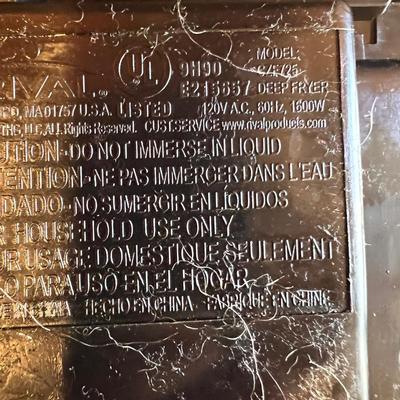 RIVAL® UL 9H90 MODEL:
E215657 DEEP FRYER
MA 01757 U.S.A. LISTED 120V A.C., 60Hz, 1600W
LLC, All Rights Reserved. CUST.SERVICE www.rivalproducts.com
CAUTION - DO NOT IMMERSE IN LIQUID
ATTENTION - NE PAS IMMERGER DANS L'EAU
CUIDADO - NO SUMERGIR EN LÍQUIDOS
HOUSEHOLD USE ONLY
USAGE DOMESTIQUE SEULEMENT
PARA USO EN EL HOGAR
HECHO EN CHINA - FABRIQUÉ EN CHINE